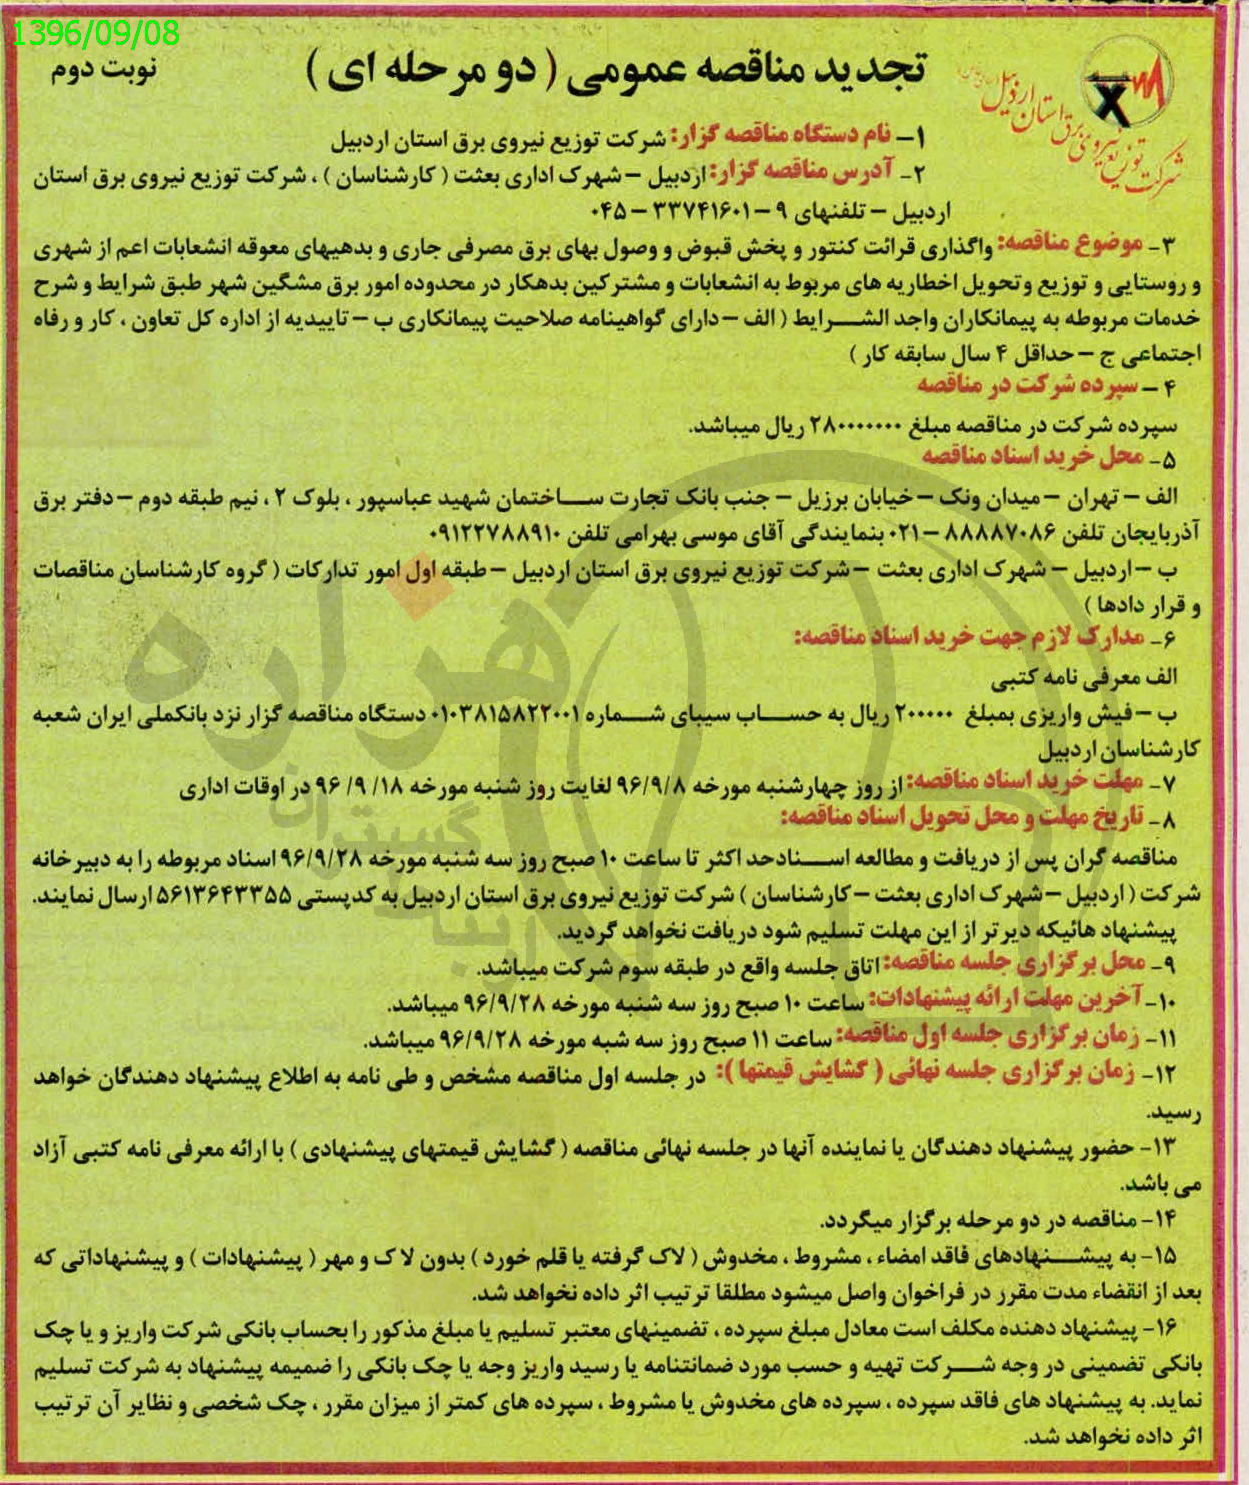 1396/09/08
تجدید مناقصه عمومی ( دو مرحله ای )
نوبت دوم
شرکت توزیع نیروی برق استان اردبیل
۱– نام دستگاه مناقصه گزار: شرکت توزیع نیروی برق استان اردبیل
۲– آدرس مناقصه گزار: اردبیل – شهرک اداری بعثت ( کارشناسان ) ، شرکت توزیع نیروی برق استان
اردبیل – تلفنهای ۹ – ۳۳۷۴۱۶۰۱ – ۰۴۵
۳– موضوع مناقصه: واگذاری قرائت کنتور و پخش قبوض و وصول بهای برق مصرفی جاری و بدهیهای معوقه انشعابات اعم از شهری
و روستایی و توزیع وتحویل اخطاریه های مربوط به انشعابات و مشترکین بدهکار در محدوده امور برق مشگین شهر طبق شرایط و شرح
خدمات مربوطه به پیمانکاران واجد الشرایط ( الف – دارای گواهینامه صلاحیت پیمانکاری ب – تاییدیه از اداره کل تعاون ، کار و رفاه
اجتماعی ج – حداقل ۴ سال سابقه کار )
۴ – سپرده شرکت در مناقصه
سپرده شرکت در مناقصه مبلغ ۲۸۰۰۰۰۰۰۰ ریال میباشد.
۵– محل خرید اسناد مناقصه
الف – تهران – میدان ونک – خیابان برزیل – جنب بانک تجارت ساختمان شهید عباسپور ، بلوک ۲ ، نیم طبقه دوم – دفتر برق
آذربایجان تلفن ۸۸۸۸۷۰۸۶ – ۰۲۱ بنمایندگی آقای موسی بهرامی تلفن ۰۹۱۲۲۷۸۸۹۱۰
ب – اردبیل – شهرک اداری بعثت – شرکت توزیع نیروی برق استان اردبیل – طبقه اول امور تدارکات ( گروه کارشناسان مناقصات
و قرار دادها )
۶– مدارک لازم جهت خرید اسناد مناقصه:
الف معرفی نامه کتبی
ب – فیش واریزی بمبلغ ۲۰۰۰۰۰ ریال به حساب سیبای شماره ۰۱۰۳۸۱۵۸۲۲۰۰۱ دستگاه مناقصه گزار نزد بانکملی ایران شعبه
کارشناسان اردبیل
۷– مهلت خرید اسناد مناقصه: از روز چهارشنبه مورخه ۹۶/۹/۸ لغایت روز شنبه مورخه ۱۸/ ۹/ ۹۶ در اوقات اداری
۸– تاریخ مهلت و محل تحویل اسناد مناقصه:
مناقصه گران پس از دریافت و مطالعه اسنادحد اکثر تا ساعت ۱۰ صبح روز سه شنبه مورخه ۹۶/۹/۲۸ اسناد مربوطه را به دبیرخانه
شرکت ( اردبیل – شهرک اداری بعثت – کارشناسان ) شرکت توزیع نیروی برق استان اردبیل به کدپستی ۵۶۱۳۶۴۳۳۵۵ ارسال نمایند.
پیشنهاد هائیکه دیرتر از این مهلت تسلیم شود دریافت نخواهد گردید.
۹– محل برگزاری جلسه مناقصه: اتاق جلسه واقع در طبقه سوم شرکت میباشد.
۱۰– آخرین مهلت ارائه پیشنهادات: ساعت ۱۰ صبح روز سه شنبه مورخه ۹۶/۹/۲۸ میباشد.
۱۱– زمان برگزاری جلسه اول مناقصه: ساعت ۱۱ صبح روز سه شبه مورخه ۹۶/۹/۲۸ میباشد.
۱۲– زمان برگزاری جلسه نهائی ( گشایش قیمتها ): در جلسه اول مناقصه مشخص و طی نامه به اطلاع پیشنهاد دهندگان خواهد
رسید.
۱۳– حضور پیشنهاد دهندگان یا نماینده آنها در جلسه نهائی مناقصه ( گشایش قیمتهای پیشنهادی ) با ارائه معرفی نامه کتبی آزاد
می باشد.
۱۴– مناقصه در دو مرحله برگزار میگردد.
۱۵– به پیشنهادهای فاقد امضاء ، مشروط ، مخدوش ( لاک گرفته یا قلم خورد ) بدون لاک و مهر ( پیشنهادات ) و پیشنهاداتی که
بعد از انقضاء مدت مقرر در فراخوان واصل میشود مطلقا ترتیب اثر داده نخواهد شد.
۱۶– پیشنهاد دهنده مکلف است معادل مبلغ سپرده ، تضمینهای معتبر تسلیم یا مبلغ مذکور را بحساب بانکی شرکت واریز و یا چک
بانکی تضمینی در وجه شرکت تهیه و حسب مورد ضمانتنامه یا رسید واریز وجه یا چک بانکی را ضمیمه پیشنهاد به شرکت تسلیم
نماید. به پیشنهاد های فاقد سپرده ، سپرده های مخدوش یا مشروط ، سپرده های کمتر از میزان مقرر ، چک شخصی و نظایر آن ترتیب
اثر داده نخواهد شد.
هزاره
گستران